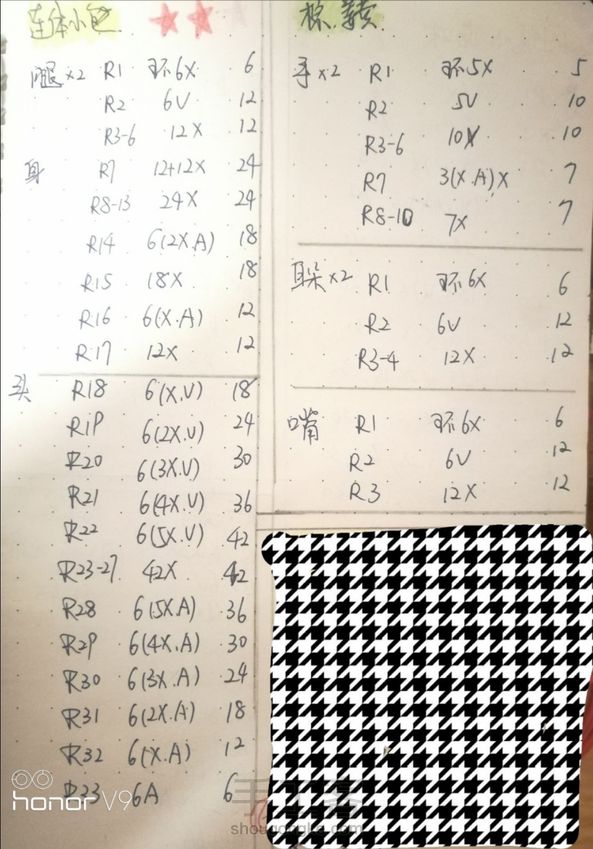 连体小
腿×2 R1 环6X 6
R2 6V 12
R3-6 12X 12
身 R7 12+12X 24
R8-13 24X 24
R14 6(2X.A) 18
R15 18X 18
R16 6(X.A) 12
R17 12X 12
头 R18 6(X.V) 18
R19 6(2X.V) 24
R20 6(3X.V) 30
R21 6(4X.V) 36
R22 6(5X.V) 42
R23-27 42X 42
R28 6(5X.A) 36
R29 6(4X.A) 30
R30 6(3X.A) 24
R31 6(2X.A) 18
R32 6(X.A) 12
R33 6A 6
手×2 R1 环5X 5
R2 5V 10
R3-6 10X 10
R7 3(X.A)X 7
R8-10 7X 7
耳朵×2 R1 环6X 6
R2 6V 12
R3-4 12X 12
嘴 R1 环6X 6
R2 6V 12
R3 12X 12
honor V9